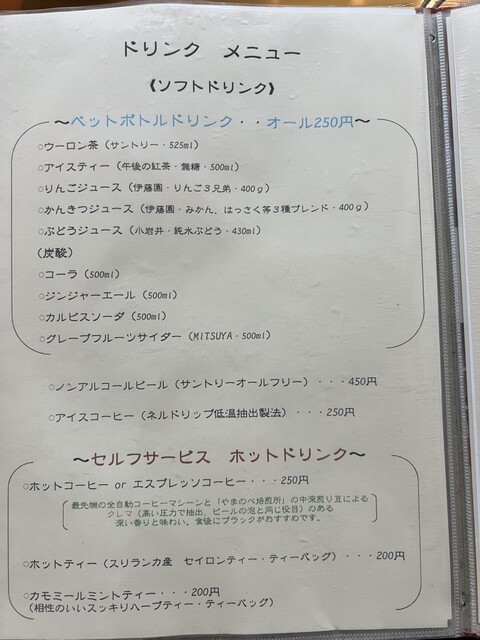 ドリンク　メニュー
《ソフトドリンク》
～ペットボトルドリンク・・オール250円～
○ウーロン茶（サントリー・525ml）
○アイスティー（午後の紅茶・無糖・500ml）
○りんごジュース（伊藤園・りんご３兄弟・400ｇ）
○かんきつジュース（伊藤園・みかん、はっさく等３種ブレンド・400ｇ）
○ぶどうジュース（小岩井・純水ぶどう・430ml）
（炭酸）
○コーラ（500ml）
○ジンジャーエール（500ml）
○カルピスソーダ（500ml）
○グレープフルーツサイダー（MITSUYA・500ml）
○ノンアルコールビール（サントリーオールフリー）・・・450円
○アイスコーヒー（ネルドリップ低温抽出製法）・・・250円
～セルフサービス　ホットドリンク～
○ホットコーヒー or エスプレッソコーヒー・・・250円
最先端の全自動コーヒーマシーンと「やまのべ焙煎所」の中深煎り豆による
クレマ（高い圧力で抽出、ビールの泡と同じ役目）のある
深い香りと味わい。食後にブラックがおすすめです。
○ホットティー（スリランカ産　セイロンティー・ティーバッグ）・・・200円
○カモミールミントティー・・・200円
（相性のいいスッキリハーブティー・ティーバッグ）